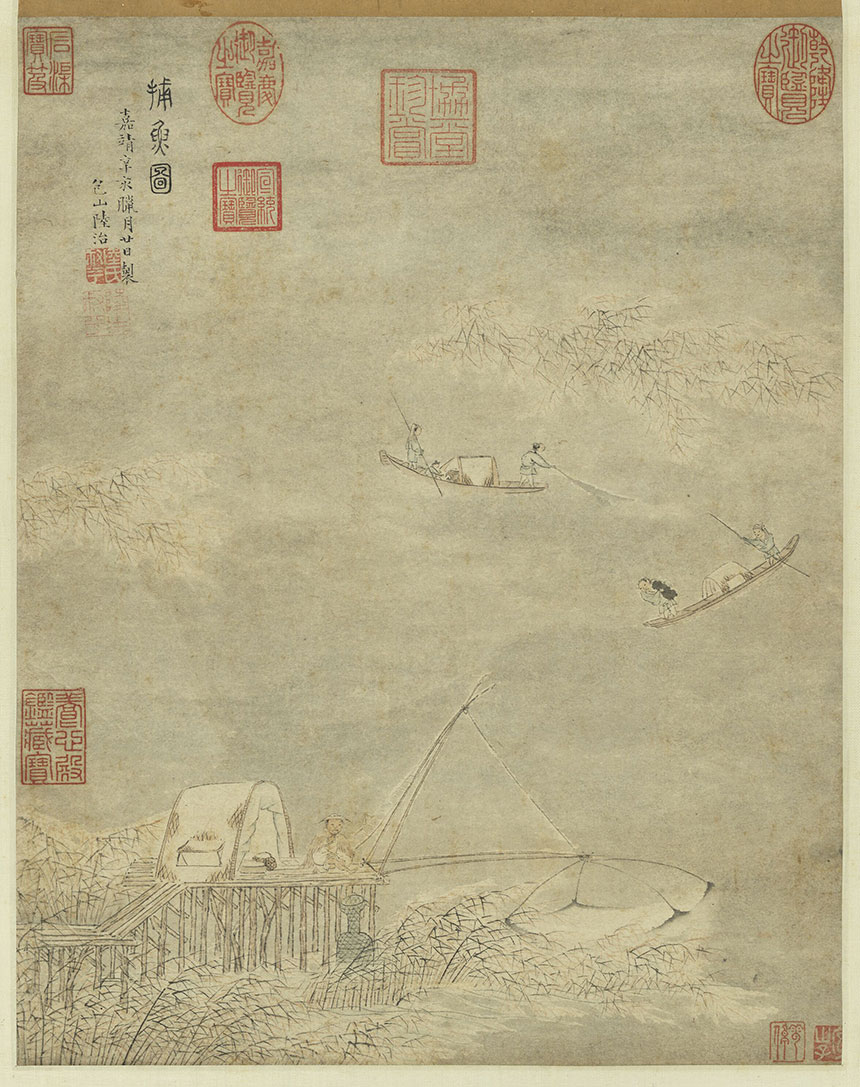 乾隆御覽之寶
嘉慶御覽之寶
宣統御覽之寶
捕魚圖
嘉靖辛亥臘月廿日製
包山陸治
石渠寶笈
養心殿鑑藏寶